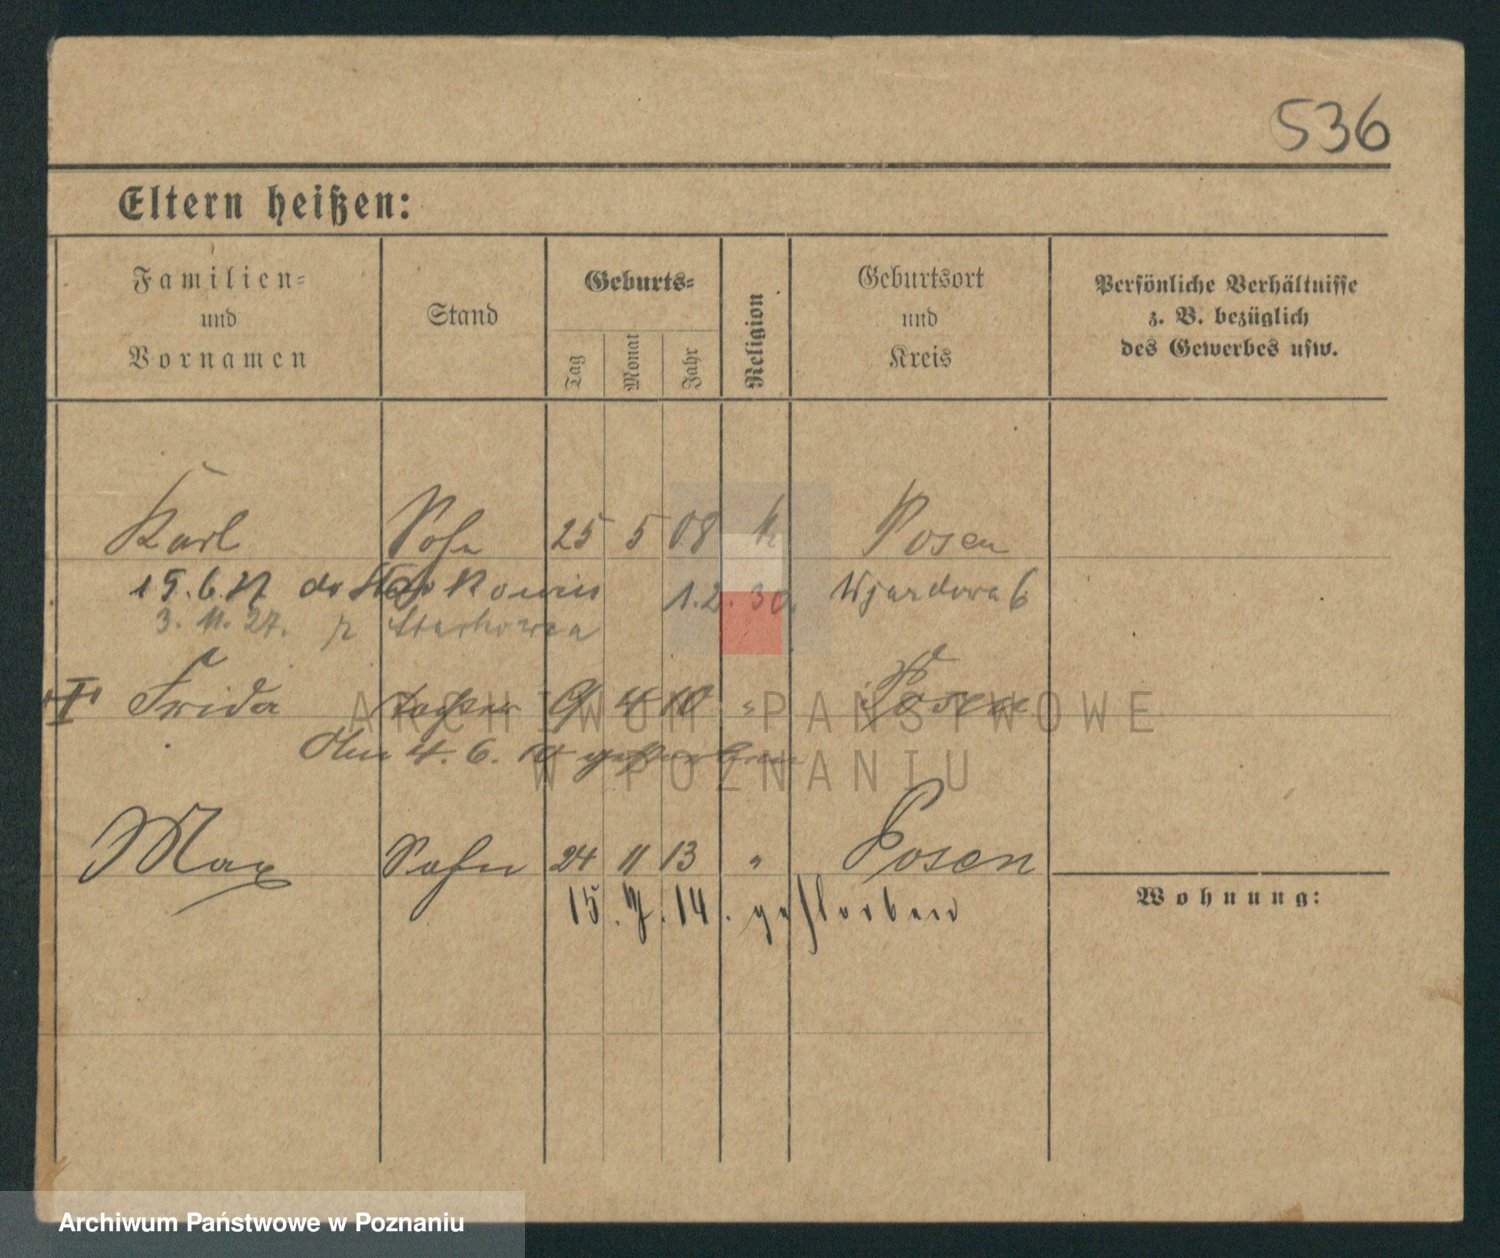 536
Eltern heißen:
Familien- und Vornamen
Stand
Geburts-
Tag
Monat
Jahr
Religion
Geburtsort und Kreis
Persönliche Verhältnisse z. B. bezüglich des Gewerbes usw.
Karl Sohn 25 5 08 k Posen
do 1.2.30.
3. 11. 27. p
Frida Tochter 9 4 10 " Posen
Am 4. 6. 10 gestorben
ARCHIWUM PAŃSTWOWE
W POZNANIU
Max Sohn 24 11 13 " Posen
15. 7. 14. gestorben
Wohnung:
Archiwum Państwowe w Poznaniu